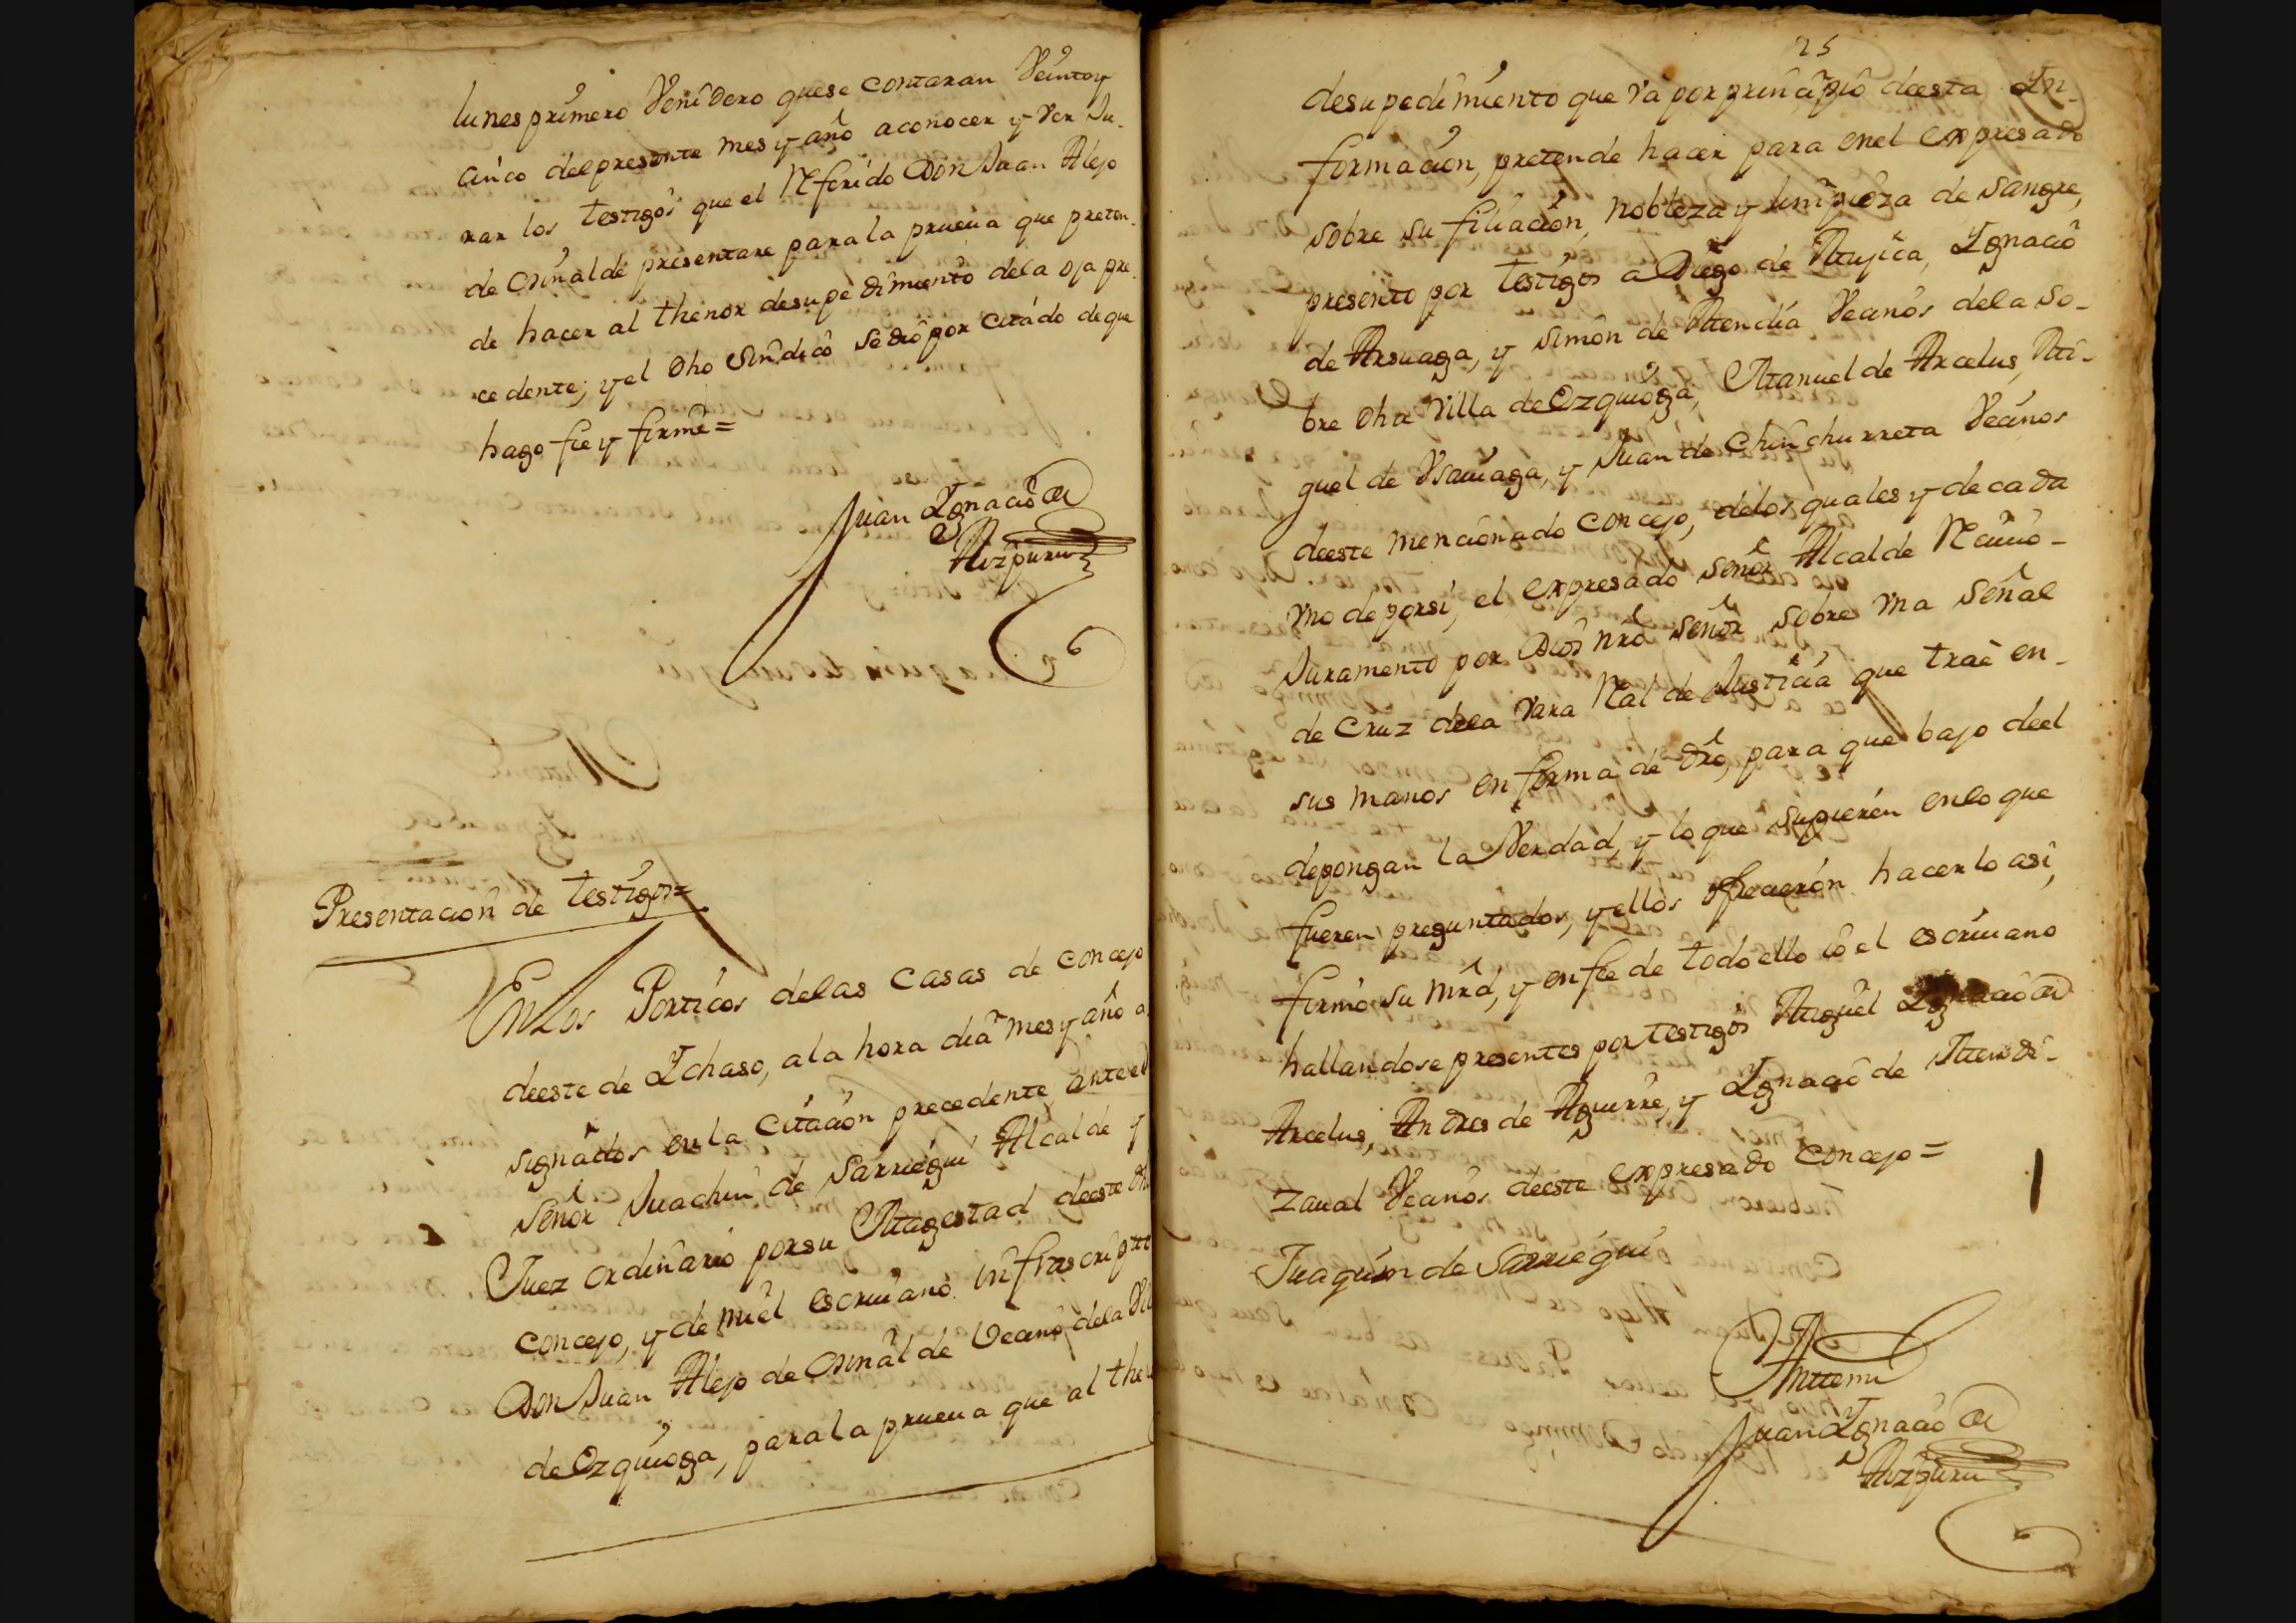 lunes primero Venidero que se contaran Veinte y
cinco del presente mes y año a conocer y ver Ju-
rar los testigos que el Referido Don Juan Alejo
de Orinalde presentare para la prueua que preten-
de hacer al thenor de su pedimiento de la oja pre-
cedente; y el Dho Sindico se dio por citado de que
hago fee y firme =
Juan Ignacio de
Aizpuru
Presentacion de testigos =
En Los Porticos de las Casas de Concejo
de este de Ychaso, a la hora dia mes y año a
signados en la Citacion precedente, ante el
Señor Juachin de Sarriegui Alcalde y
Juez ordinario por su Magestad de este Dho
Concejo, y de mi el escriuano infrascripto
Don Juan Alejo de Orinalde Vecino de la Vil
de Ezquioga, para la prueua que al then
25
de su pedimiento que va por principio de esta In-
formacion, pretende hacer para en el expresado
sobre su filiacion, nobleza y limpieza de sangre,
presento por testigos a Diego de Mujica, Ignacio
de Arsuaga, y Simon de Mendia Vecinos de la so-
bre Dha Villa de Ezquioga, Manuel de Arcelus, Mi-
guel de Vsauiaga, y Juan de Chinchurreta Vecinos
de este mencionado Concejo, de los quales y de cada
vno de por si, el expresado Señor Alcalde Reciuio
Juramento por Dios nro Señor sobre vna Señal
de Cruz de la Vara Real de Justicia que trae en
sus manos en forma de dro, para que bajo de el
depongan la Verdad, y lo que supieren en lo que
fueren preguntados, y ellos ofrecieron hacerlo asi,
firmó su mrd, y en fee de todo ello io el escriuano
hallandose presentes por testigos Miguel Ignacio de
Arcelus, Andres de Aguirre, y Ignacio de Mendi-
zaual Vecinos de este expresado Concejo =
Juaquin de Sarriegui
Antemi
Juan Ignacio de
Aizpuru